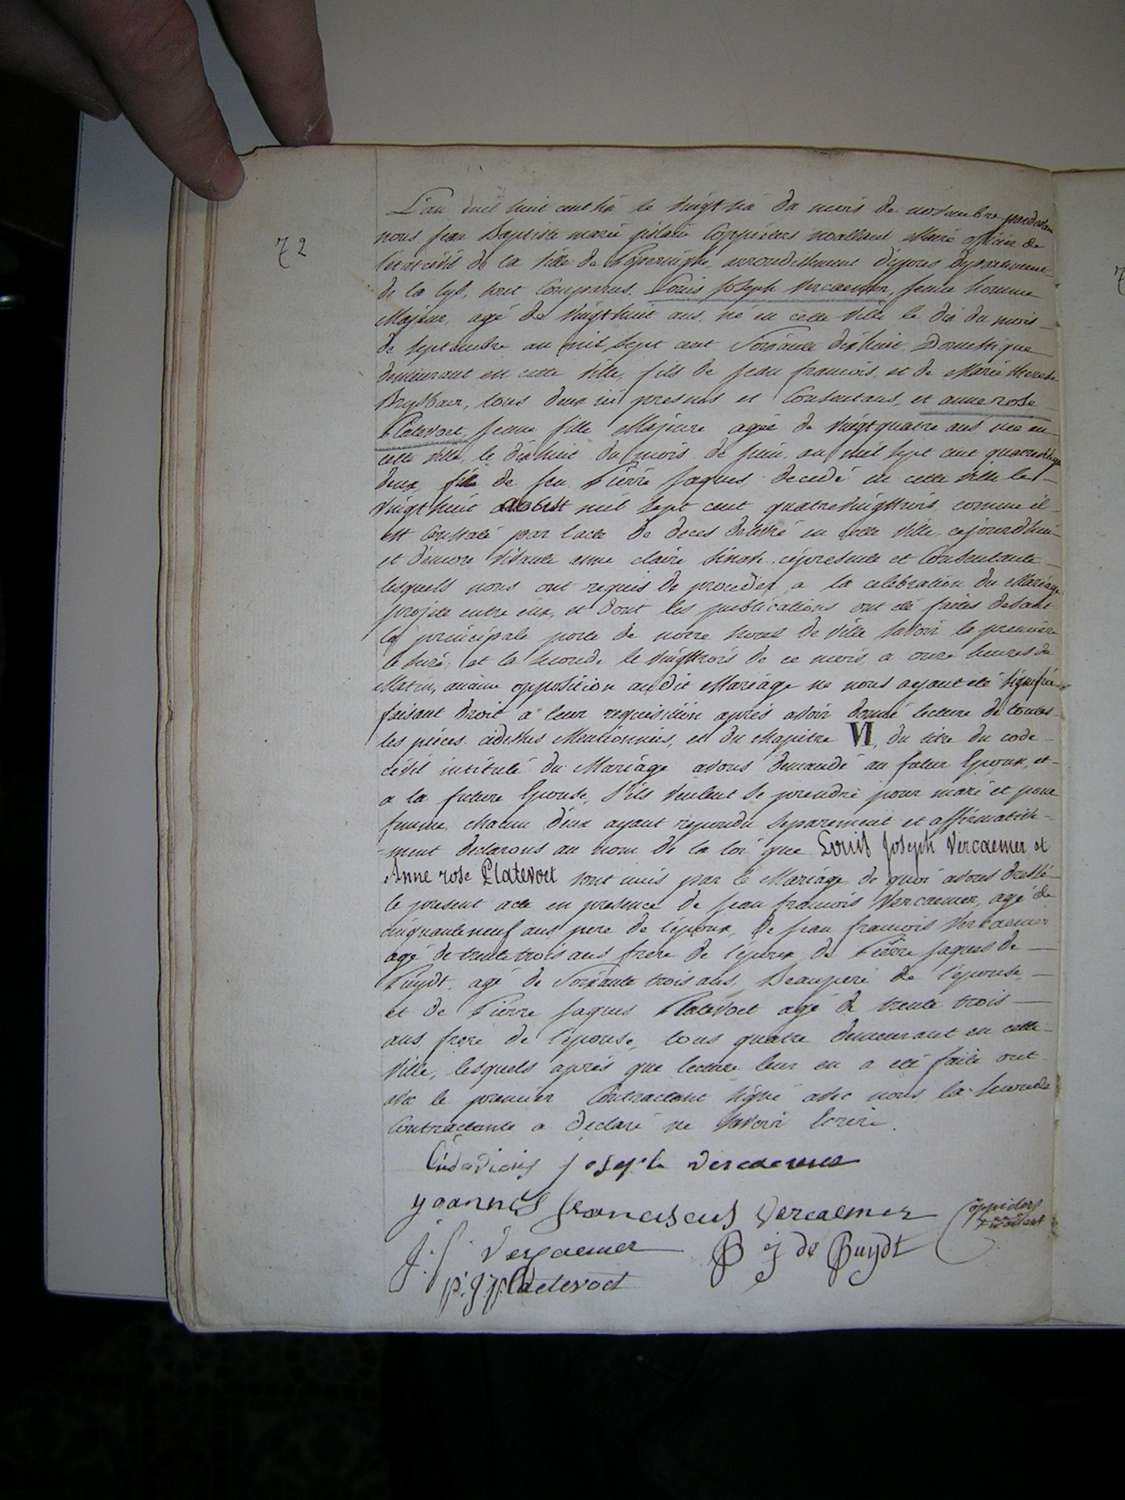 72
L'an mil huit cent six le vingt six du mois de novembre pardevant
nous Jean Baptiste marie hilaire Coppieters wallant Maire officier de
l'etat civil de la Ville de Poperinghe, arrondissement d'ypres departement
de la lys, sont comparus, Louis Joseph Vercaemer, jeune homme
Majeur, agé de Vingthuit ans, né en cette Ville le dix du mois
de Septembre an mil Sept cent Soixante dixhuit, Domestique
demeurant en cette Ville, fils de Jean francois, et de Marie therese
tous deux ici presens et Consentans, et anne rose
Platevoet, Jeune fille Majeure agée de Vingtquatre ans née en
cette Ville, le dixhuit du mois de Juin an mil Sept cent quatrevingt
deux fille de feu Pierre Jaques decedé en cette Ville le
Vingthuit aout mil Sept cent quatrevingttrois, comme il
est Constaté par l'acte de deces delivré en cette Ville cejourd'hui
et d'encore Vivante anne claire cipresente et Consentante
lesquels nous ont requis de proceder a la celebration du Mariage
projetté entre eux, et dont les publications ont été faites devant
la principale porte de notre maison de Ville Savoir la premiere
le Seize, et la Seconde le Vingttrois de ce mois a onze heures du
Matin, aucune opposition audit Mariage ne nous ayant eté Signifiée
faisant droit a leur requisition après avoir donné lecture de toutes
les pieces cidessus Mentionnées, et du chapitre VI, du titre du code
civil intitulé du Mariage avons demandé au futur Epoux, et
a la future Epouse, S'ils Veulent Se prendre pour mari et pour
femme, chacun d'eux ayant repondu Separement et affirmative-
ment declarons au nom de la loi que Louis Joseph Vercaemer et
Anne rose Platevoet sont unis par le Mariage, de quoi avons dressé
le present acte en presence de Jean francois Vercaemer, agé de
cinquante neuf ans pere de l'époux, de Jean francois Vercaemer
agé de trente trois ans frere de l'époux de Pierre Jaques de
Puydt, agé de Soixante trois ans, Beaupere de l'epouse,
et de Pierre Jaques Platevoet agé de trente trois
ans frere de l'epouse, tous quatre demeurant en cette
Ville, lesquels après que lecture leur en a été faite ont
avec le premier Contractant Signé avec nous la Seconde
Contractante a declaré ne Savoir Ecrire.
Ludovicus Joseph Vercaemer
Joannes Franciscus Vercaemer
Coppieters
wallant
J: f: Vercaemer
P J de Puydt
p: J: Platevoet